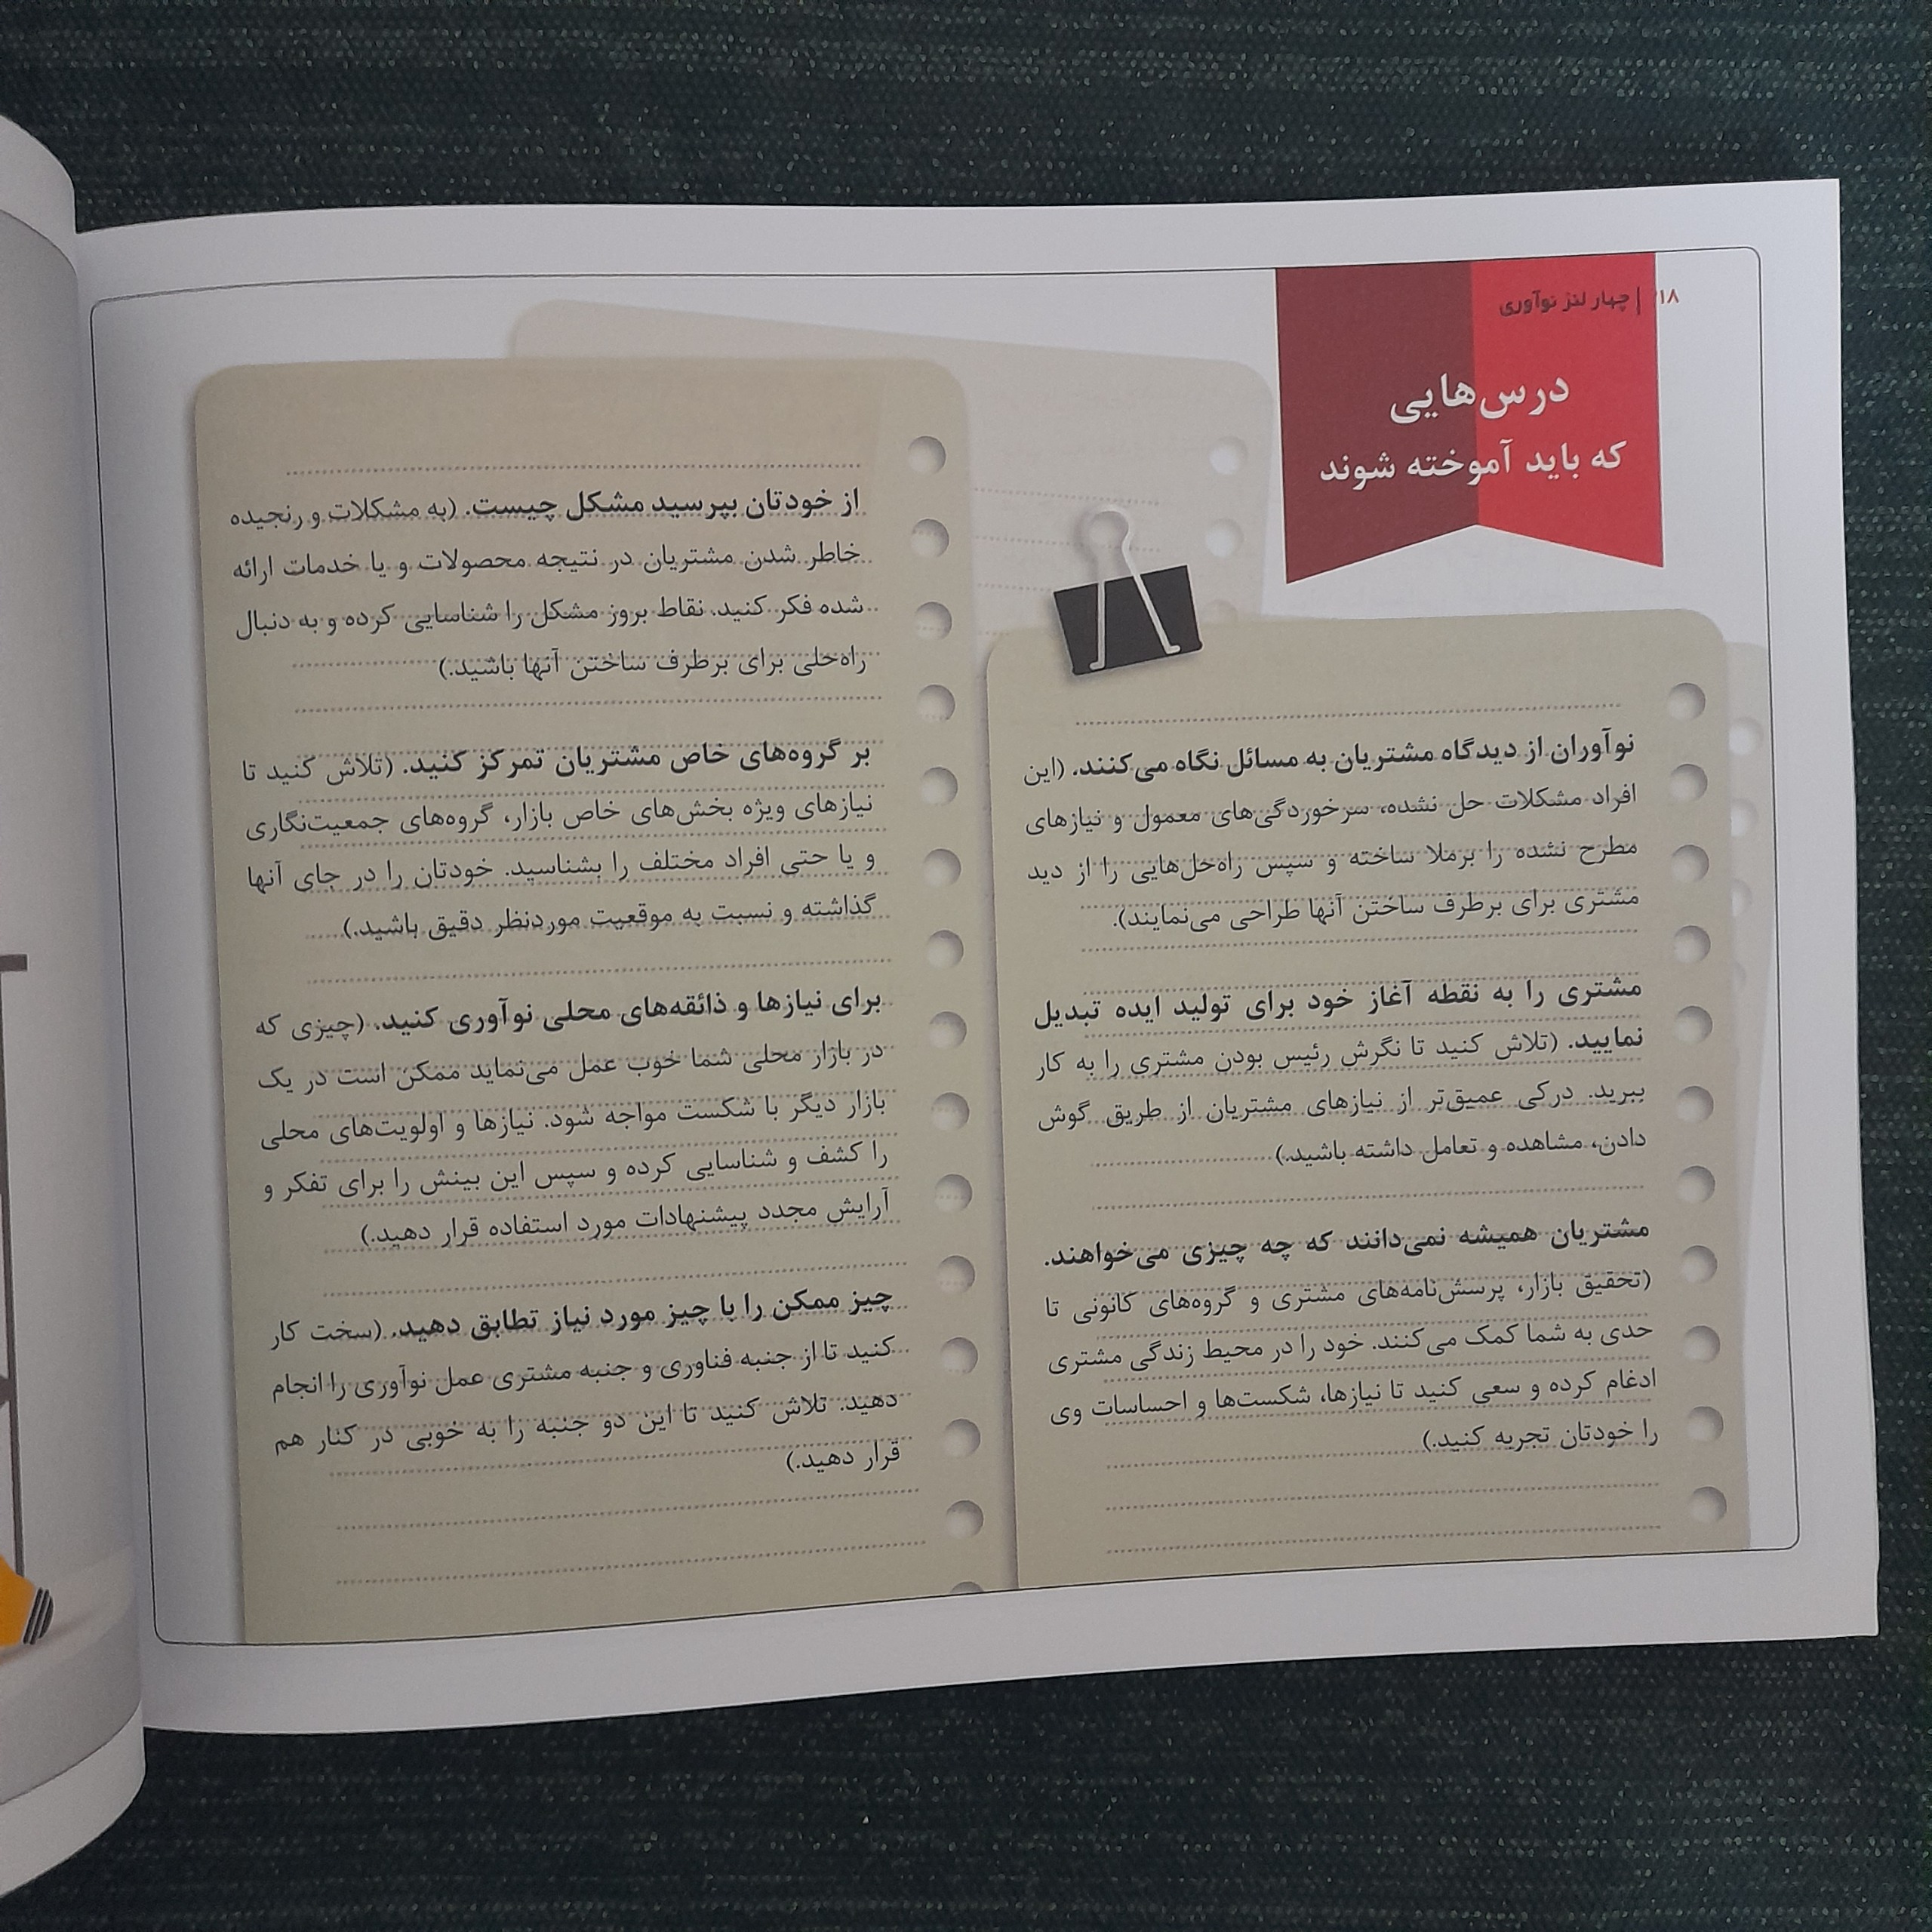 ۲۱۸ | چهار لنز نوآوری
درس‌هایی
که باید آموخته شوند
نوآوران از دیدگاه مشتریان به مسائل نگاه می‌کنند. (این
افراد مشکلات حل نشده، سرخوردگی‌های معمول و نیازهای
مطرح نشده را برملا ساخته و سپس راه‌حل‌هایی را از دید
مشتری برای برطرف ساختن آنها طراحی می‌نمایند).
مشتری را به نقطه آغاز خود برای تولید ایده تبدیل
نمایید. (تلاش کنید تا نگرش رئیس بودن مشتری را به کار
ببرید. درکی عمیق‌تر از نیازهای مشتریان از طریق گوش
دادن، مشاهده و تعامل داشته باشید.)
مشتریان همیشه نمی‌دانند که چه چیزی می‌خواهند.
(تحقیق بازار، پرسش‌نامه‌های مشتری و گروه‌های کانونی تا
حدی به شما کمک می‌کنند. خود را در محیط زندگی مشتری
ادغام کرده و سعی کنید تا نیازها، شکست‌ها و احساسات وی
را خودتان تجربه کنید.)
از خودتان بپرسید مشکل چیست. (به مشکلات و رنجیده
خاطر شدن مشتریان در نتیجه محصولات و یا خدمات ارائه
شده فکر کنید. نقاط بروز مشکل را شناسایی کرده و به دنبال
راه‌حلی برای برطرف ساختن آنها باشید.)
بر گروه‌های خاص مشتریان تمرکز کنید. (تلاش کنید تا
نیازهای ویژه بخش‌های خاص بازار، گروه‌های جمعیت‌نگاری
و یا حتی افراد مختلف را بشناسید. خودتان را در جای آنها
گذاشته و نسبت به موقعیت موردنظر دقیق باشید.)
برای نیازها و ذائقه‌های محلی نوآوری کنید. (چیزی که
در بازار محلی شما خوب عمل می‌نماید ممکن است در یک
بازار دیگر با شکست مواجه شود. نیازها و اولویت‌های محلی
را کشف و شناسایی کرده و سپس این بینش را برای تفکر و
آرایش مجدد پیشنهادات مورد استفاده قرار دهید.)
چیز ممکن را با چیز مورد نیاز تطابق دهید. (سخت کار
کنید تا از جنبه فناوری و جنبه مشتری عمل نوآوری را انجام
دهید. تلاش کنید تا این دو جنبه را به خوبی در کنار هم
قرار دهید.)